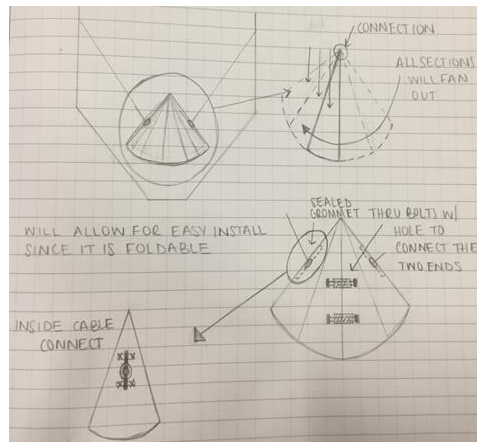 CONNECTION
ALL SECTIONS
WILL FAN
OUT
WILL ALLOW FOR EASY INSTALL
SINCE IT IS FOLDABLE
SEALED
GROMMET
THRU BOLTS W/
HOLE TO
CONNECT THE
TWO ENDS
INSIDE CABLE
CONNECT